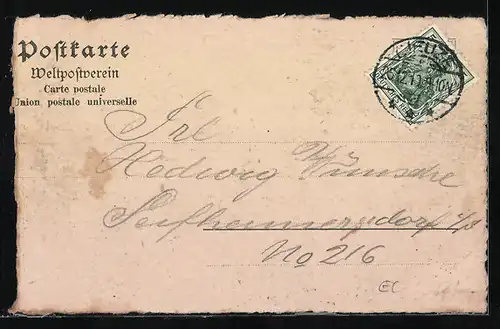 Postkarte
Weltpostverein
Carte postale
Union postale universelle
Frl
Hedwig Wünsche
Seifhennersdorf i/S
No 216
EC